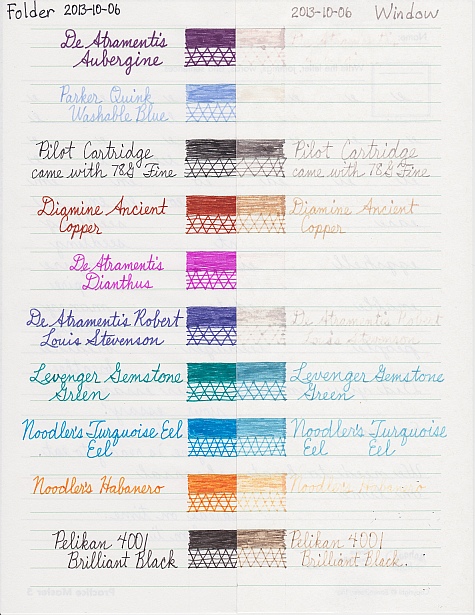 Folder 2013-10-06 2013-10-06 Window
De Atramentis
Aubergine
Parker Quink
Washable Blue
Pilot Cartridge Pilot Cartridge
came with 78G Fine came with 78G Fine
Diamine Ancient Diamine Ancient
Copper Copper
De Atramentis
Dianthus
De Atramentis Robert De Atramentis Robert
Louis Stevenson
Levenger Gemstone Levenger Gemstone
Green Green
Noodler's Turquoise Eel Noodler's Turquoise
Eel Eel Eel
Noodler's Habanero Noodler's Habanero
Pelikan 4001 Pelikan 4001
Brilliant Black Brilliant Black.